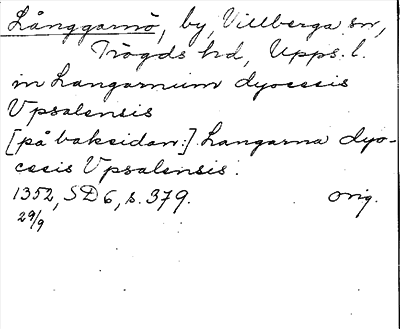 Långgarnö, by, Villberga sn,
Trögds hd, Upps. l.
in Langarnum dyocesis
Vpsalensis
[på baksidan:] Langarna dyo-
cesis Vpsalensis.
1352, SD 6, s. 379. orig.
29/9